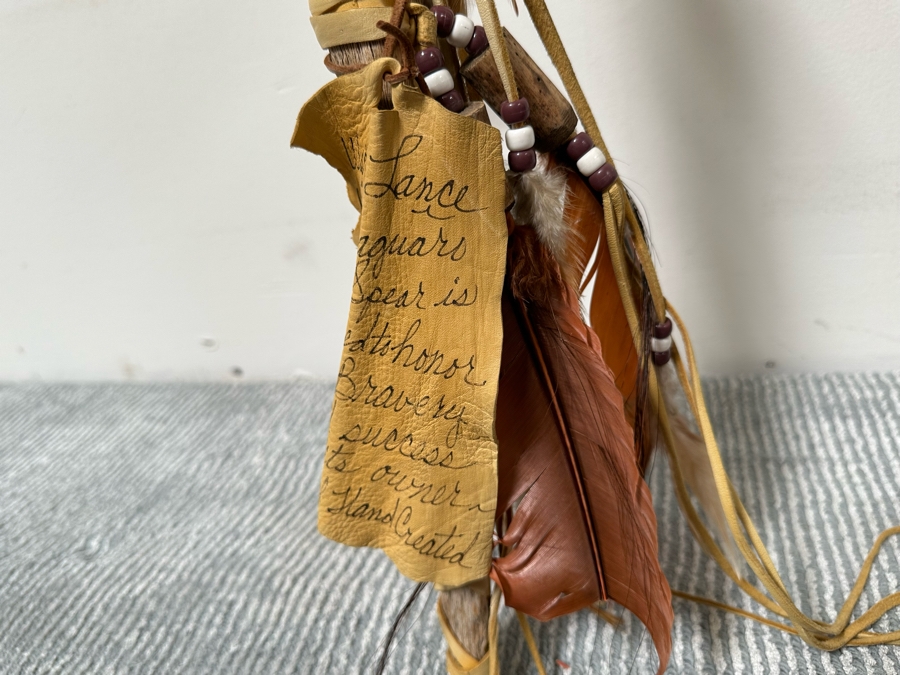 Lance
aguars
Spear is
ed to honor
Bravery
success
ts owner
Hand Created